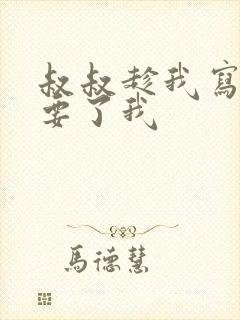 叔叔趁我寫
要了我
馬德慧